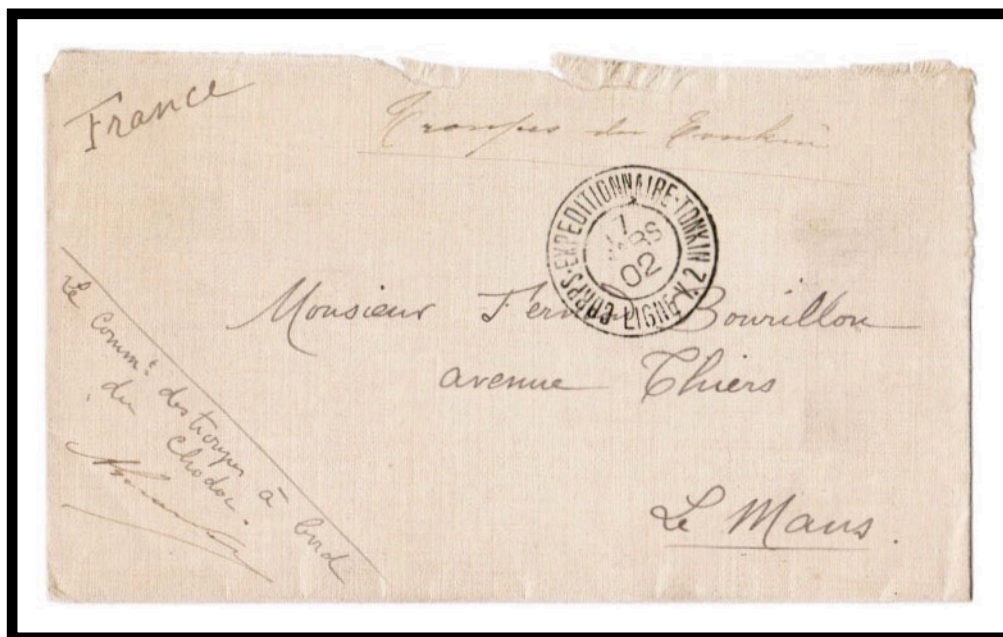 France
Troupes du Tonkin
CORPS·EXPEDITIONNAIRE·TONKIN
LIGNE N 2
MARS
02
Monsieur Bourillon
avenue Thiers
Le Mans.
Le Commt des troupes à bord
du Chodoc.